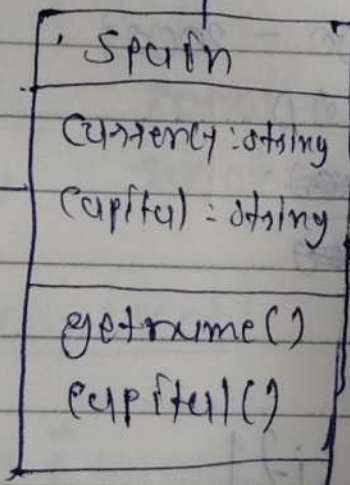 Spain
Currency : string
Capital : string
getname()
Capital()